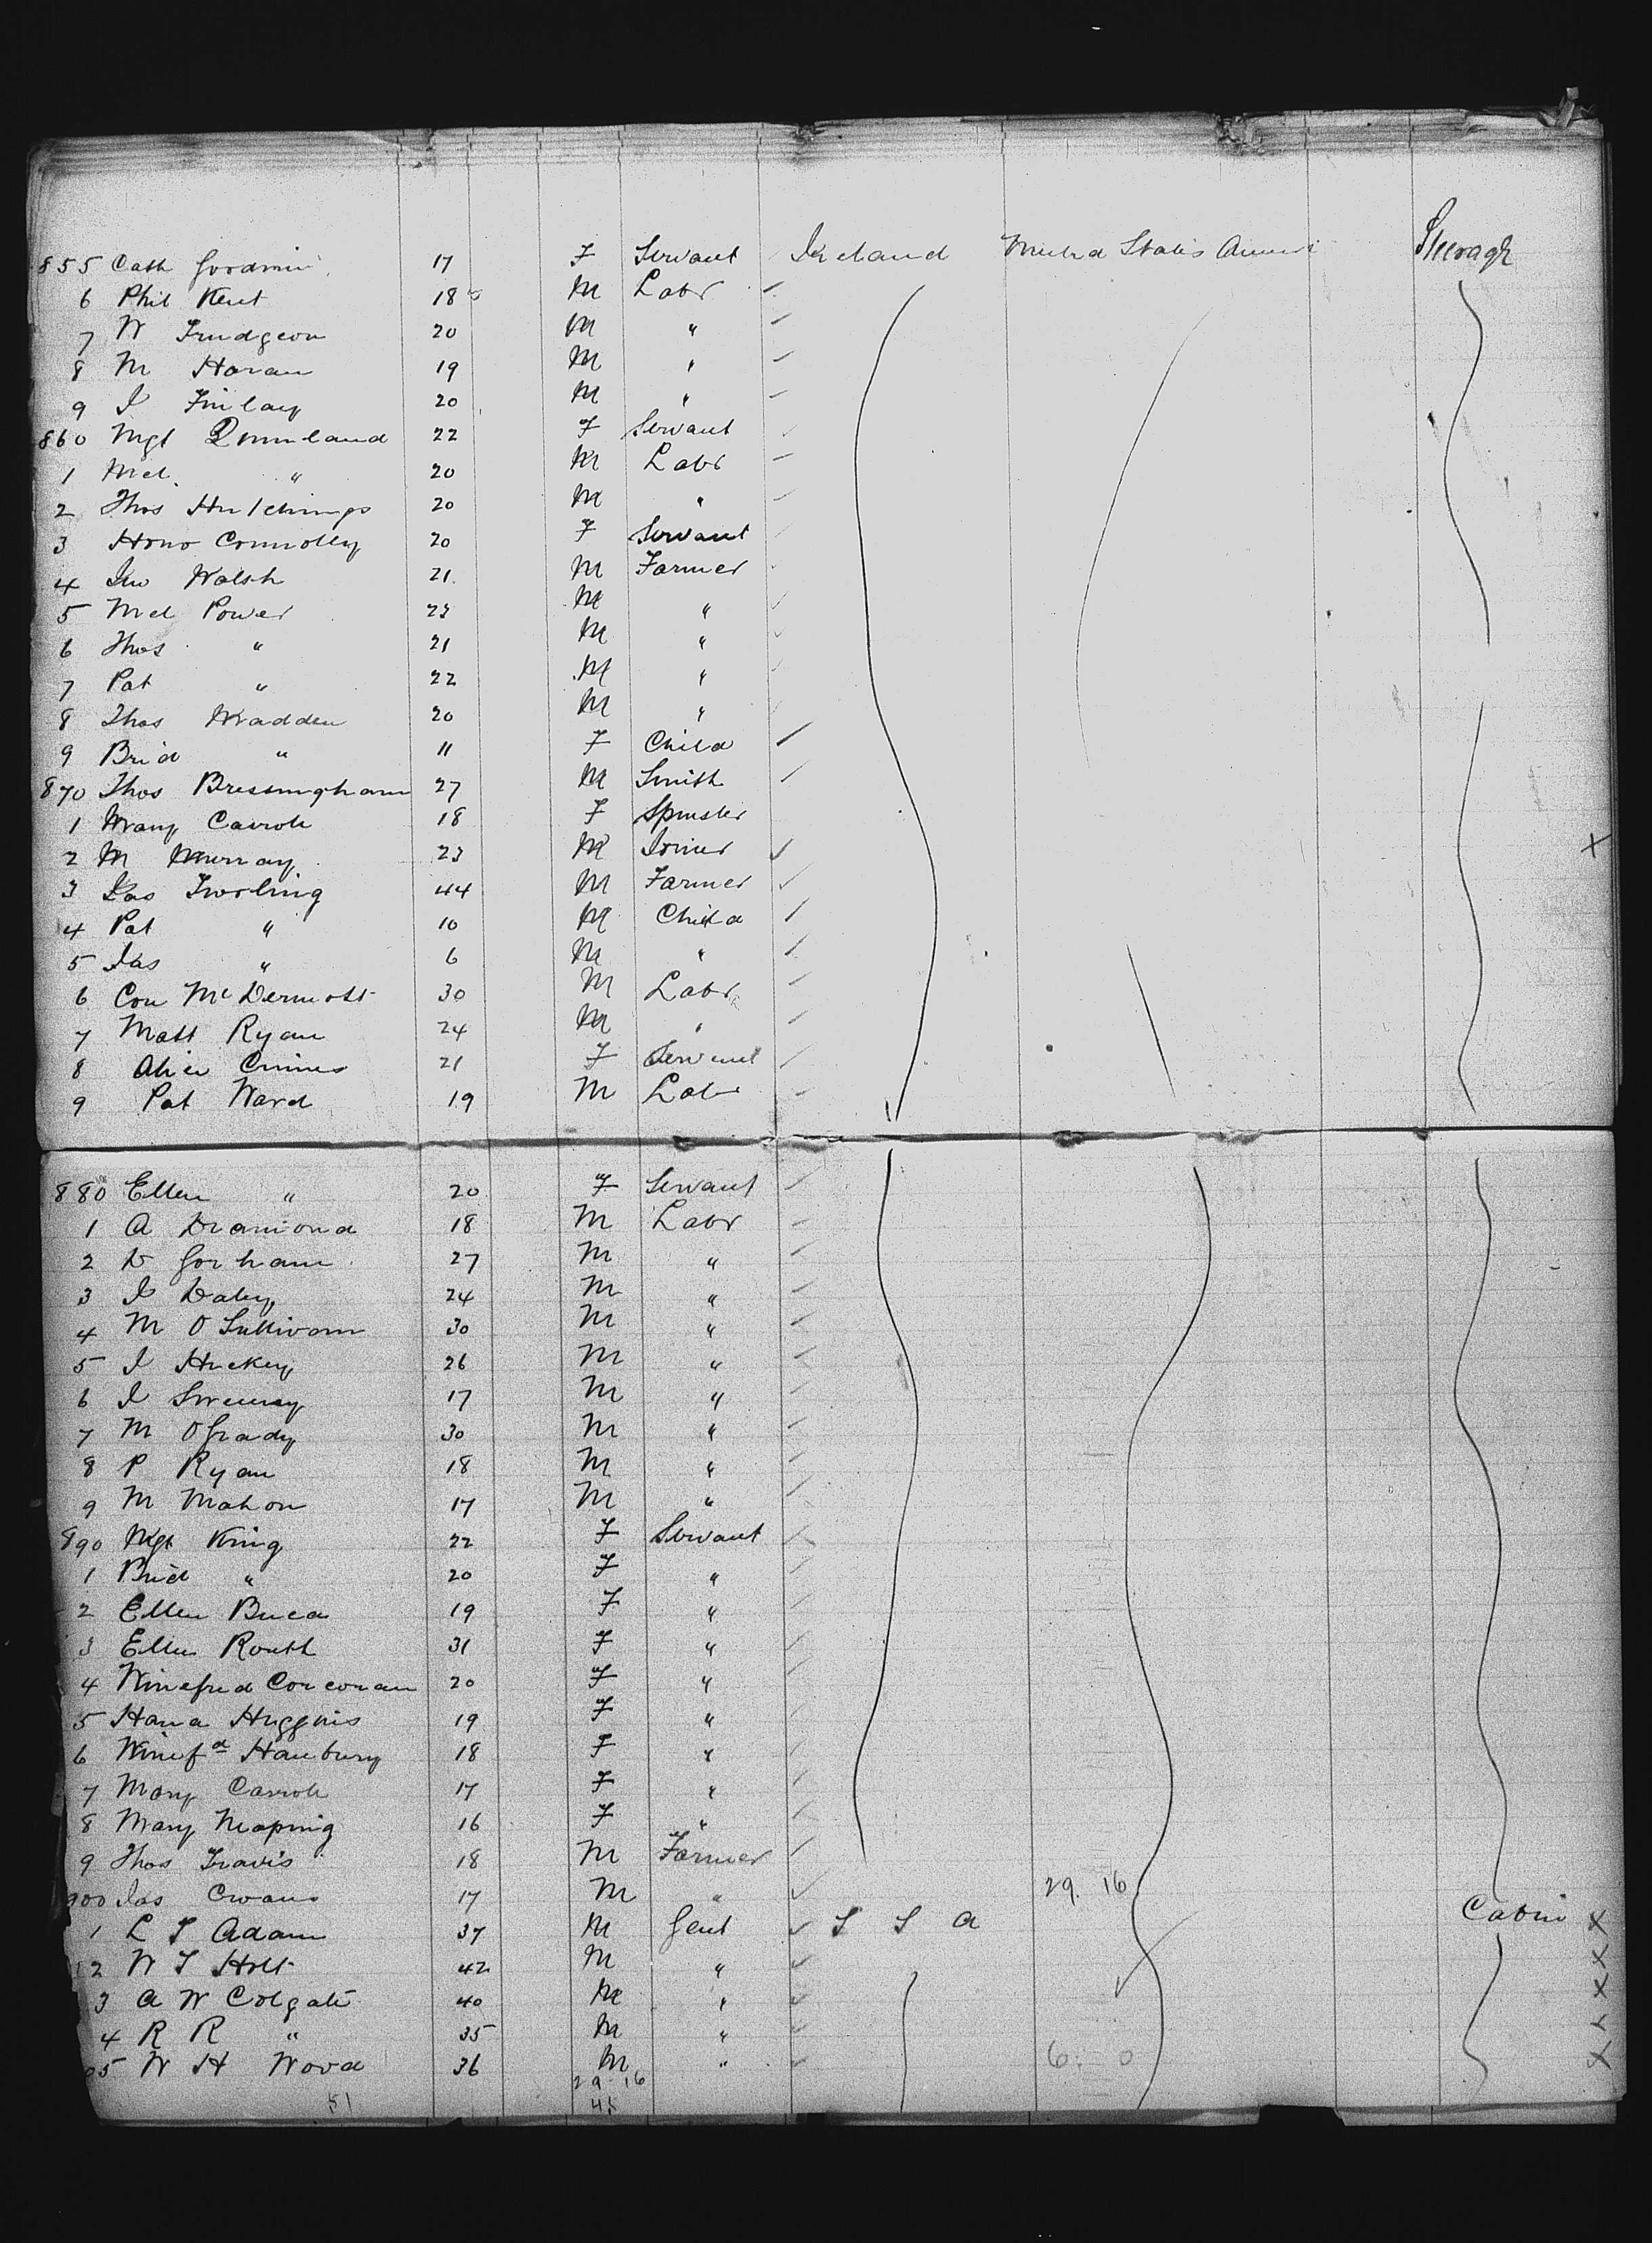 855 Cath Goodwin 17 F Servant Ireland United States Ameri Steerage
6 Phil Kent 18 M Labr
7 W Trudgeon 20 M "
8 M Horan 19 M "
9 J Finlay 20 M "
860 Mgt Quinland 22 F Servant
1 Mcl " 20 M Labr
2 Thos Hutchings 20 M "
3 Hono Connolly 20 F Servant
4 Jno Walsh 21 M Farmer
5 Mcl Power 23 M "
6 Thos " 21 M "
7 Pat " 22 M "
8 Thos Madden 20 M "
9 Brid " 11 F Child
870 Thos Bressingham 27 M Smith
1 Mary Carrole 18 F Spinster
2 M Murray 23 M Joiner X
3 Jas Twoling 44 M Farmer
4 Pat " 10 M Child
5 Jas " 6 M "
6 Con McDermott 30 M Labr
7 Matt Ryan 24 M "
8 Alice 21 F Servant
9 Pat Ward 19 M Labr
880 Ellen " 20 F Servant
1 A Dramond 18 M Labr
2 D Gorham 27 M "
3 J Daley 24 M "
4 M O Sullivan 30 M "
5 J Huckey 26 M "
6 J Sweeney 17 M "
7 M O Grady 30 M "
8 P Ryan 18 M "
9 M Mahon 17 M "
890 Mgt King 22 F Servant
1 Brid " 20 F "
2 Ellen 19 F "
3 Ellen Routh 31 F "
4 Winefred Corcoran 20 F "
5 Hana Huggins 19 F "
6 Winefd Hanbury 18 F "
7 Mary Carrole 17 F "
8 Mary 16 F "
9 Thos Travis 18 M Farmer
900 Jas 17 M " 29. 16
1 L S Adam 37 M Gent S S A Cabin X
2 W T Holt 42 M " X
3 A W Colgate 40 M " X
4 R R " 35 M " X
05 W H Wood 36 M " 6. 0 X
29. 16
51 45